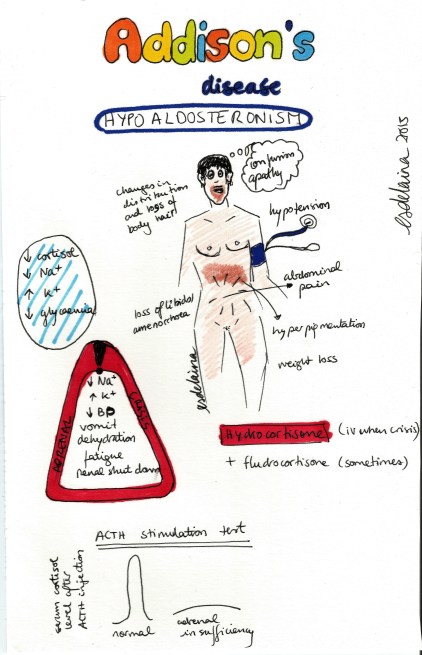 Addison's
disease
HYPOALDOSTERONISM
esdelaina 2015
confusion
apathy
changes in
distribution
and loss of
body hair
hypotension
↓ cortisol
↓ Na+
↑ K+
↓ glycaemia
abdominal
pain
loss of libido/
amenorrhoea
hyperpigmentation
weight loss
esdelaina
!
↓ Na+
↑ K+
↓ BP
vomit
dehydration
fatigue
renal shut down
ADRENAL
CRISIS
Hydrocortisone (iv when crisis)
+ fludrocortisone (sometimes)
ACTH stimulation test
serum cortisol
level after
ACTH injection
normal
adrenal
insufficiency